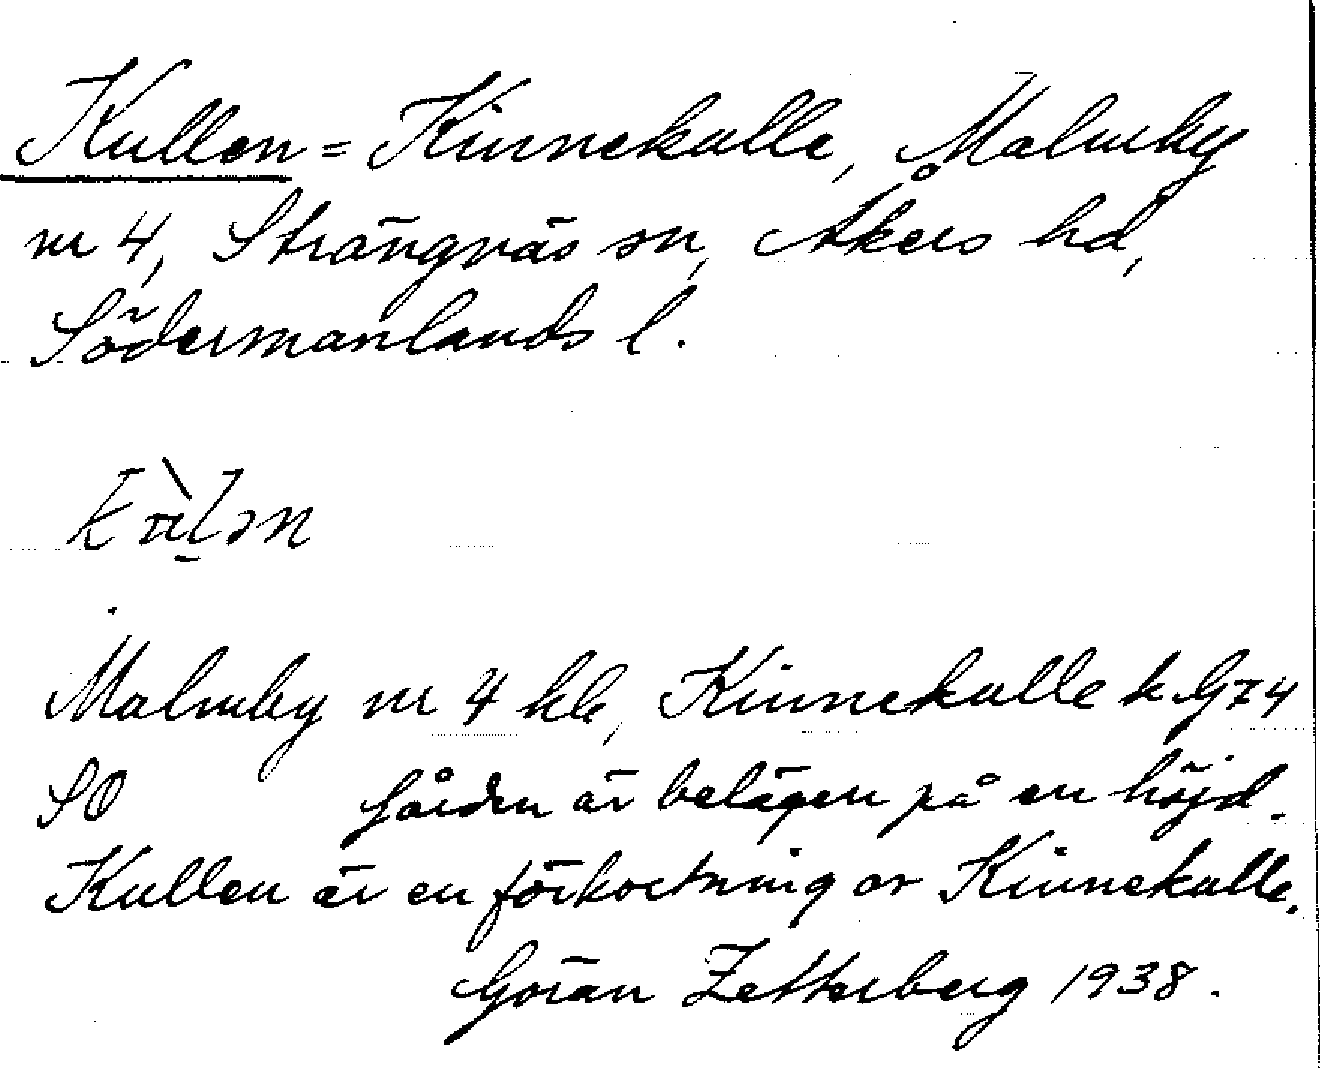 Kullen = Kinnekulle, Malmby
nr 4, Strängnäs sn, Åkers hd,
Södermanlands l.
Malmby nr 4 kb, Kinnekulle k. G74
SO Gården är belägen på en höjd.
Kullen är en förkortning av Kinnekulle.
Göran Zetterberg 1938.